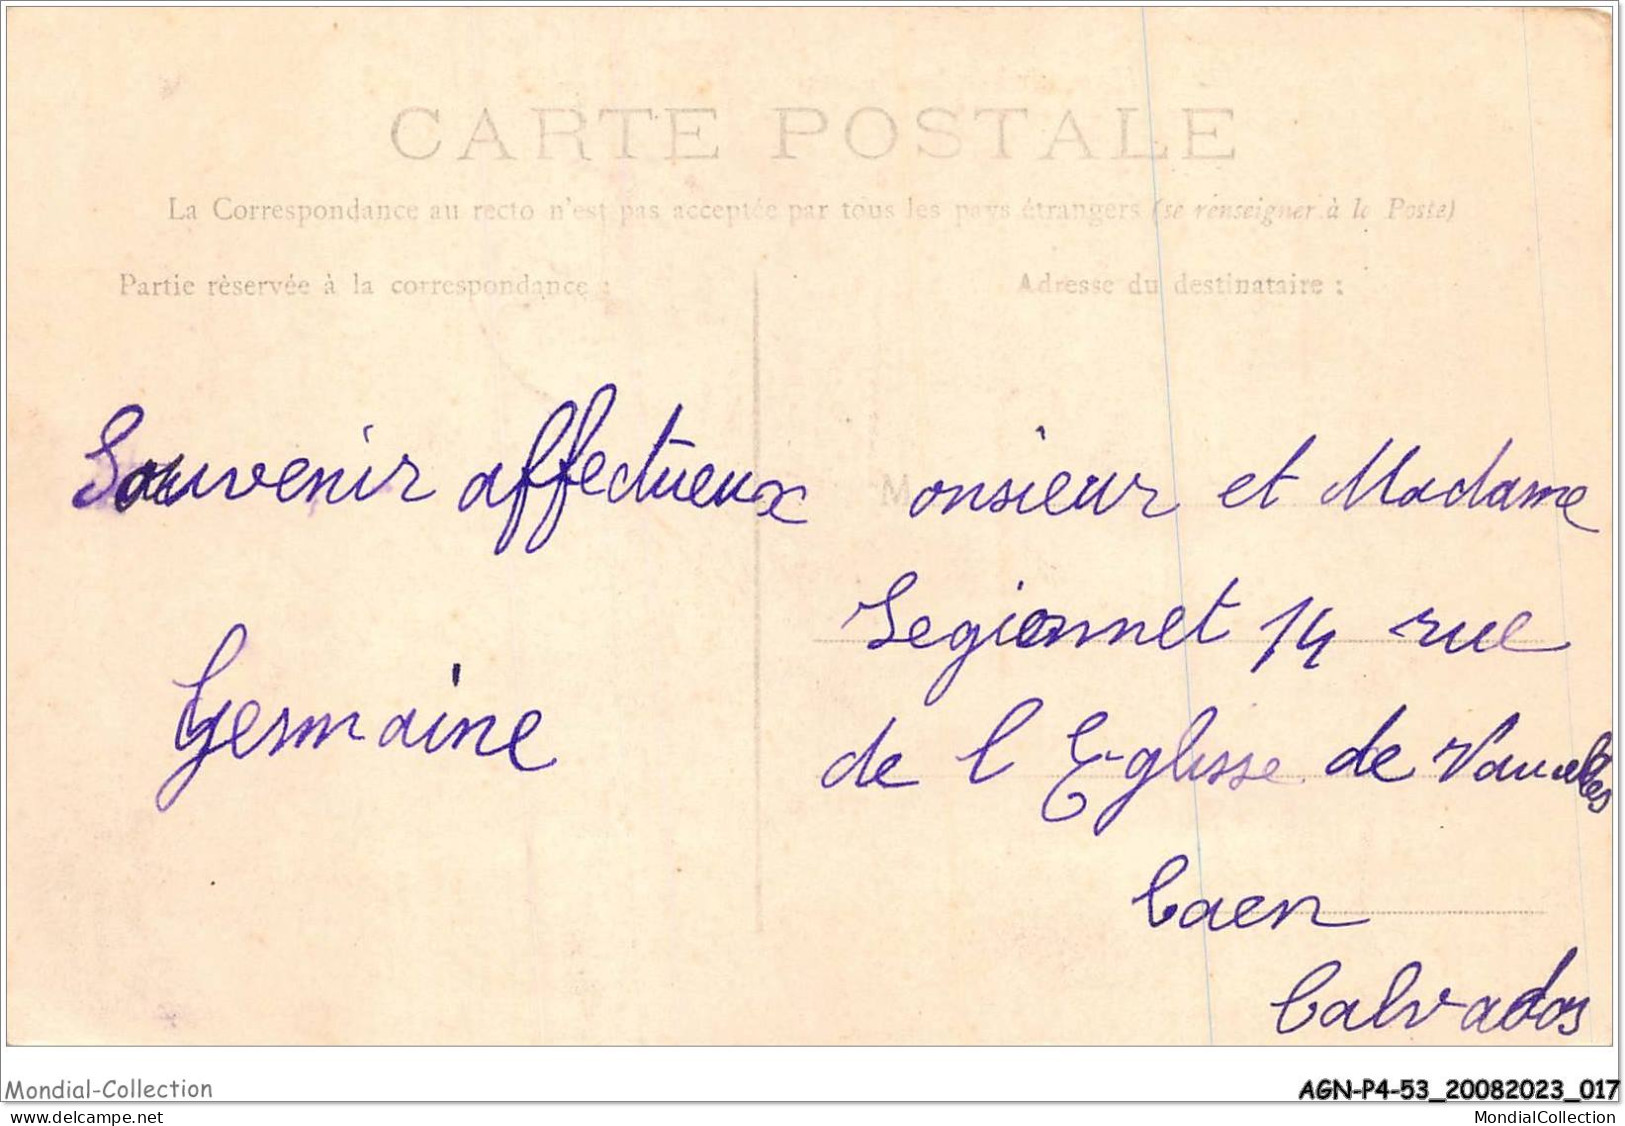 CARTE POSTALE
La Correspondance au recto n'est pas acceptée par tous les pays étrangers (se renseigner à la Poste)
Partie rèservée à la correspondance :
Adresse du destinataire :
Souvenir affectueux
Germaine
Monsieur et Madame
Legionnet 14 rue
de l Eglisse de Vaucelles
Caen
Calvados
Mondial-Collection
AGN-P4-53_20082023_017
www.delcampe.net
MondialCollection